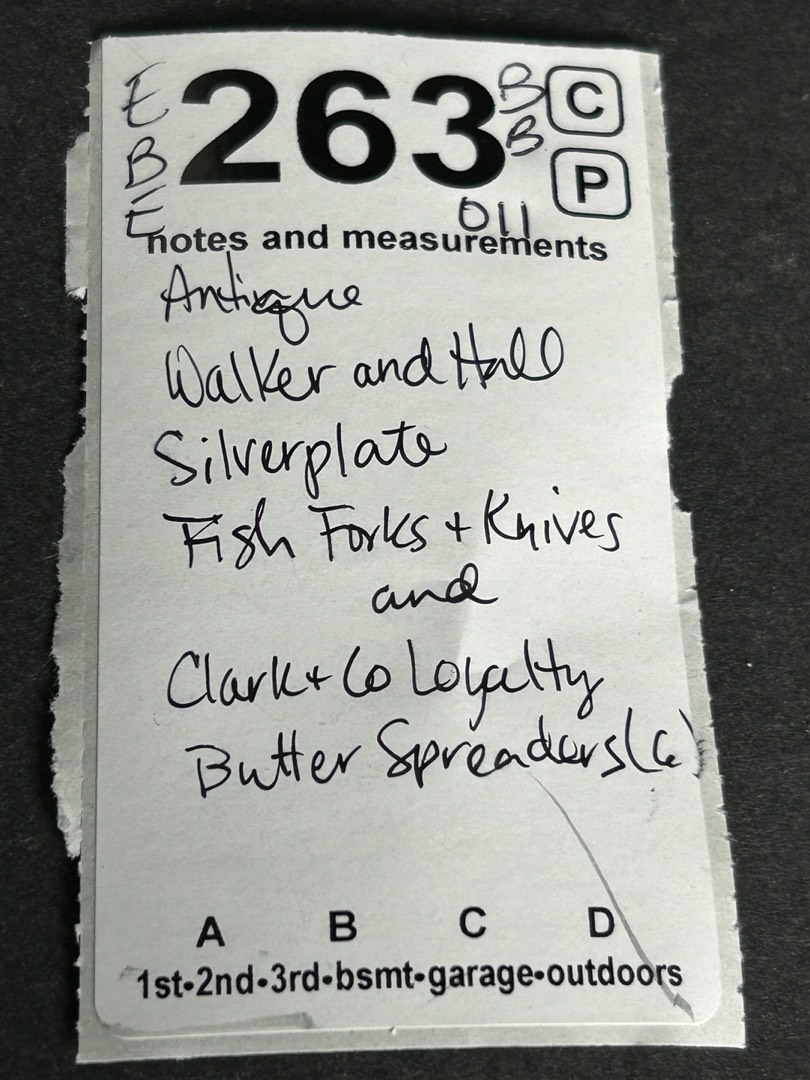 E 263 B C
B B P
E 011
notes and measurements
Antique
Walker and Hall
Silverplate
Fish Forks + Knives
and
Clark + Co Loyalty
Butter Spreaders (6)
A B C D
1st•2nd•3rd•bsmt•garage•outdoors